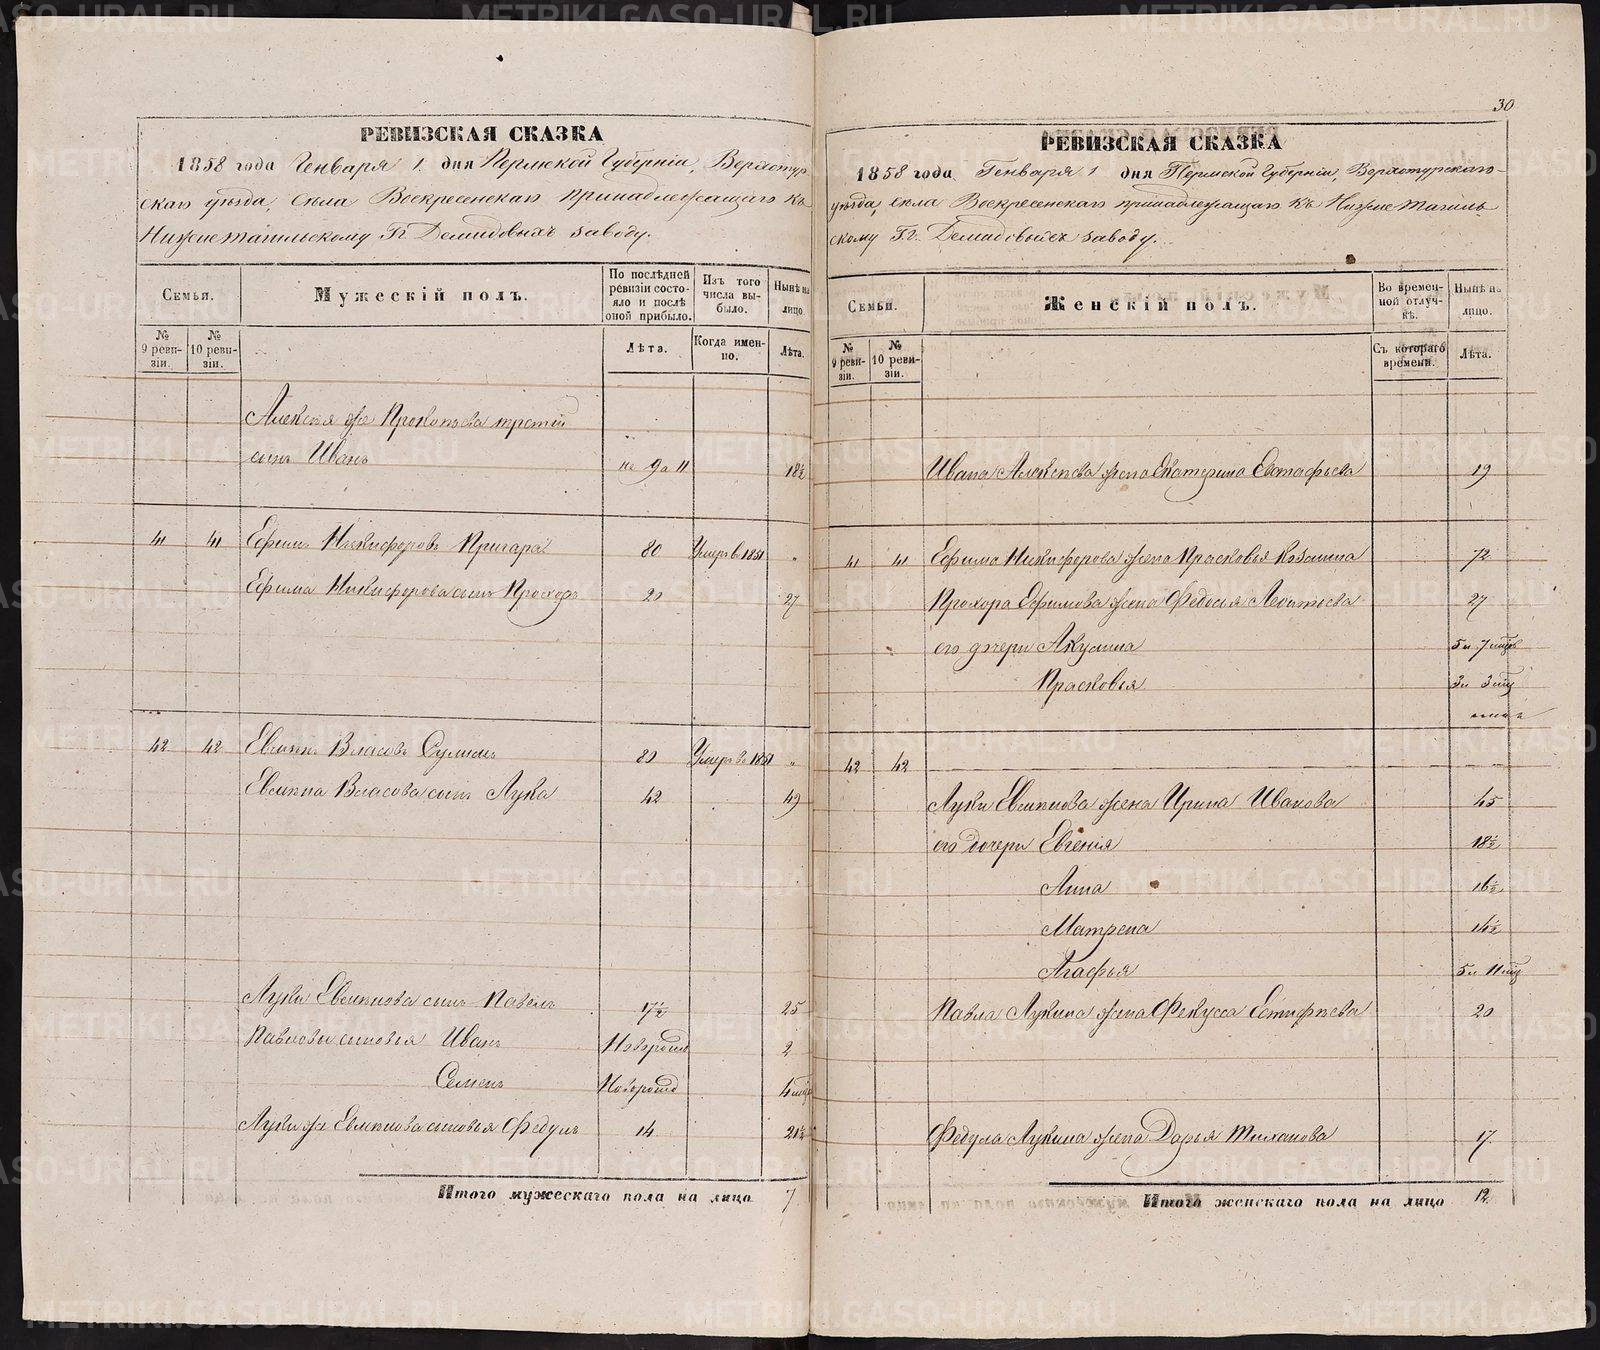 30
РЕВИЗСКАЯ СКАЗКА
1858 года Генваря 1 дня Пермской Губерніи, Верхотур-
скаго уѣзда, села Воскресенскаго принадлежащаго къ
Нижнетагильскому Гг. Демидовыхъ заводу.
Семьи.
Мужескій полъ.
По послѣдней ревизіи состояло и послѣ оной прибыло.
Изъ того числа выбыло.
Нынѣ на лицо.
№ 9 ревизіи.
№ 10 ревизіи.
Лѣта.
Когда именно.
Лѣта.
Алексѣя же Прокопьева третій
сынъ Иванъ 9 а 11 18½
41 41 Ефимъ Никифоровъ Пригара 80 Умеръ въ 1851 "
Ефима Никифорова сынъ Прохоръ 20 27
42 42 Евсикъ Власовъ 80 Умеръ въ 1851 "
Власова сынъ Лука 42 49
Луки сынъ Павелъ 17½ 25
Павловы сыновья Иванъ Новорожд 2
Семенъ Новорожд 4 мѣс
Луки же сыновья Федулъ 14 21½
Итого мужескаго пола на лицо 7
РЕВИЗСКАЯ СКАЗКА
1858 года Генваря 1 дня Пермской Губерніи, Верхотурскаго
уѣзда, села Воскресенскаго принадлежащаго къ Нижнетагиль-
скому Гг. Демидовыхъ заводу.
Семьи.
Женскій полъ.
Во временной отлучкѣ.
Нынѣ на лицо.
№ 9 ревизіи.
№ 10 ревизіи.
Съ котораго времени.
Лѣта.
Ивана Алексѣева жена Екатерина Евстафьева 19
41 41 Ефима Никифорова жена Прасковья Козмина 72
Прохора Ефимова жена Федосья Леонтьева 27
его дочери Акулина 5 и 7 мѣс
Прасковья 3 и 3 мѣс
42 42
Луки жена Ирина Иванова 45
его дочери Евгенія 18½
Анна 16½
Матрена 14½
Агафья 5 и 11 мѣс
Павла Лукина жена Фекуса Естифѣева 20
Федула Лукина жена Дарья Тиханова 17
Итого женскаго пола на лицо 12
METRIKI.GASO-URAL.RU